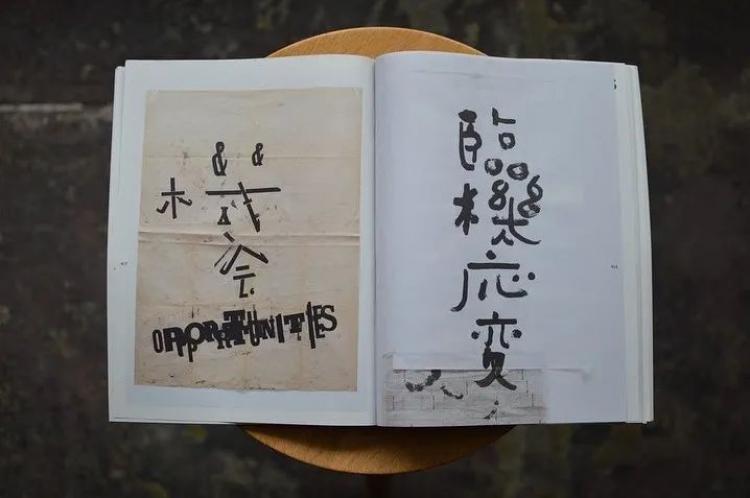 機会
OPPORTUNITIES
臨機応変